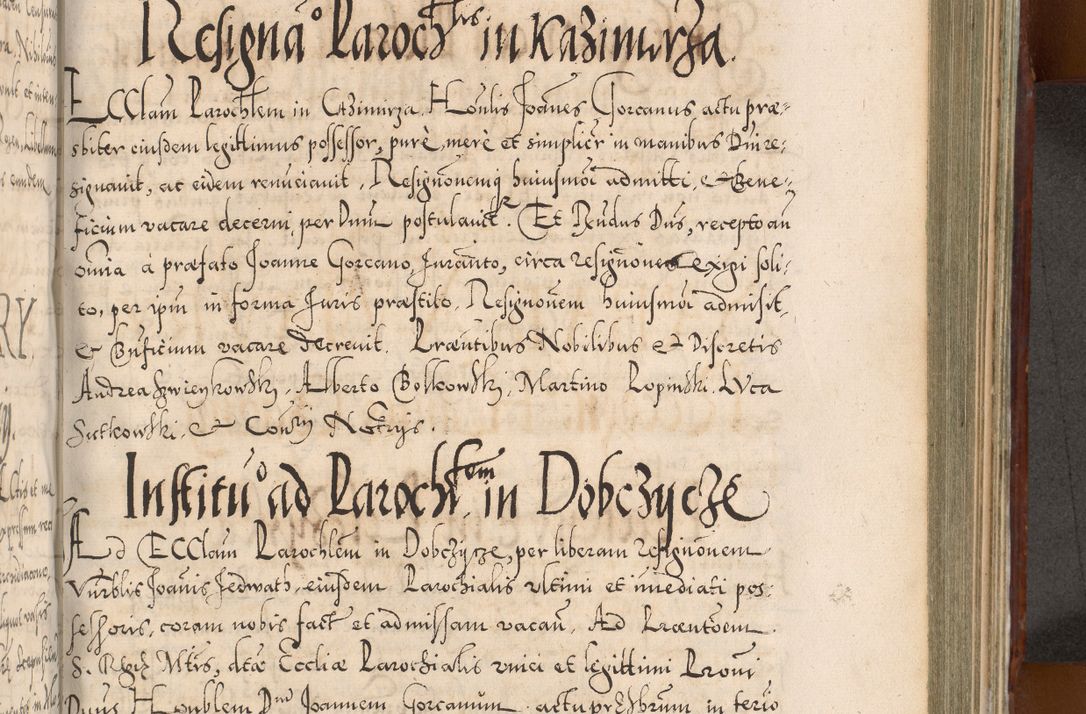 Resignao Parochlis in Kazimirza.
ECClam Parochlem in Cazimirza, Honlis Joanes Gorcanus actu præ-
sbiter eiusdem legittimus possessor, purè, merè et simplicr in manibus Dni re-
signauit, ac eidem renunciauit, Resignonemq huiusmoi admitti, et Bene-
ficium vacare decerni, per Dnum postulauit. Et Rndus Dns, recepto an
omnia à præfato Joanne Gorcano, Juranto, circa resignones exigi soli-
to, per ipm in forma Juris præstito. Resignonem huiusmoi admisit,
et Bnficium vacare decreuit. Præntibus Nobilibus et Discretis
Andrea Szwieykowski, Alberto Bolkowski, Martino Lopinski, Luca
Sutkowski, et Conss Notrijs.
Institu° ad Parochlem in Dobczycze
Ad ECClam Parochlem in Dobczycze, per liberam resignonem
Vnrblis Joanis Jedwath, eiusdem Parochialis vltimi et imediati pos-
sessoris, coram nobis fact et admissam vacan, Ad Præntoem
S. Rgiæ Mtis, dtæ Eccliæ Parochialis vnici et legittimi Proni
Dnus Honblem Dnum Joannem Gorcanum, actu præsbrum in terio